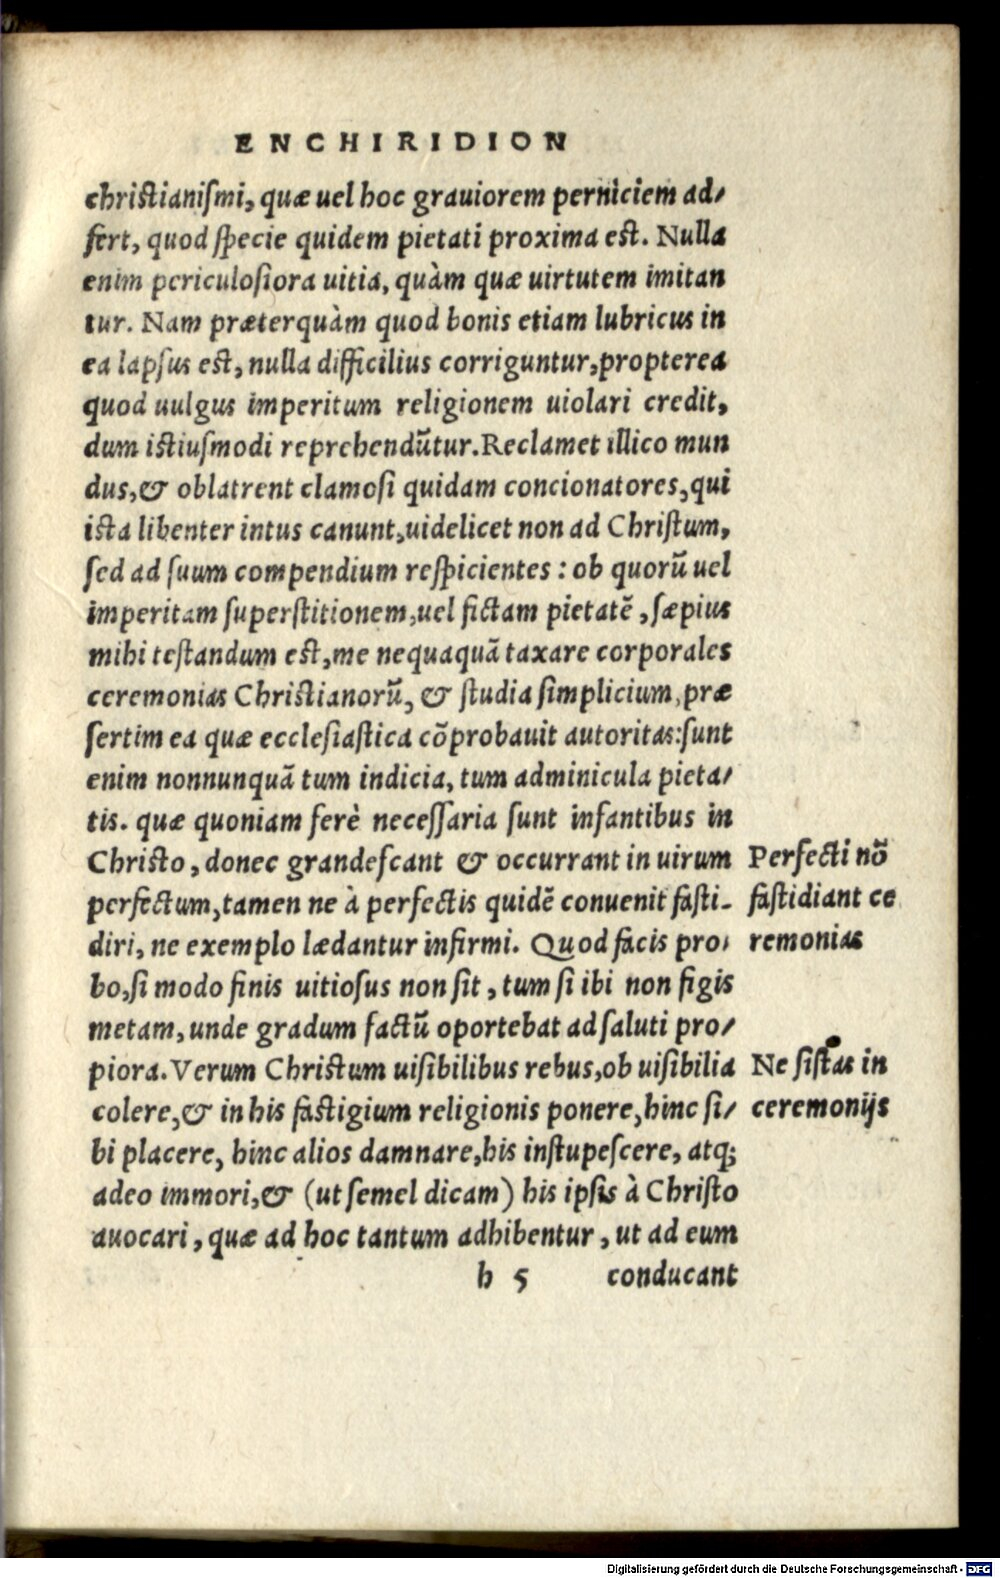 ENCHIRIDION
chriſtianiſmi, quæ uel hoc grauiorem perniciem ad/
fert, quod ſpecie quidem pietati proxima eſt. Nulla
enim periculoſiora uitia, quàm quæ uirtutem imitan
tur. Nam præterquàm quod bonis etiam lubricus in
ea lapſus eſt, nulla difficilius corriguntur, propterea
quod uulgus imperitum religionem uiolari credit,
dum iſtiuſmodi reprehendũtur. Reclamet illico mun
dus, & oblatrent clamoſi quidam concionatores, qui
iſta libenter intus canunt, uidelicet non ad Chriſtum,
ſed ad ſuum compendium reſpicientes: ob quorũ uel
imperitam ſuperſtitionem, uel fictam pietatẽ, ſæpius
mihi teſtandum eſt, me nequaquã taxare corporales
ceremonias Chriſtianorũ, & ſtudia ſimplicium, præ
ſertim ea quæ eccleſiaſtica cõprobauit autoritas: ſunt
enim nonnunquã tum indicia, tum adminicula pieta/
tis. quæ quoniam ferè neceſſaria ſunt infantibus in
Chriſto, donec grandeſcant & occurrant in uirum
perfectum, tamen ne à perfectis quidẽ conuenit faſti-
diri, ne exemplo lædantur infirmi. Quod facis pro/
bo, ſi modo finis uitioſus non ſit, tum ſi ibi non figis
metam, unde gradum factũ oportebat ad ſaluti pro/
piora. Verum Chriſtum uiſibilibus rebus, ob uiſibilia
colere, & in his faſtigium religionis ponere, hinc ſi/
bi placere, hinc alios damnare, his inſtupeſcere, atq;
adeo immori, & (ut ſemel dicam) his ipſis à Chriſto
auocari, quæ ad hoc tantum adhibentur, ut ad eum
h 5 conducant
Perfecti nõ
faſtidiant ce
remonias
Ne ſiſtas in
ceremonijs
Digitalisierung gefördert durch die Deutsche Forschungsgemeinschaft - DFG